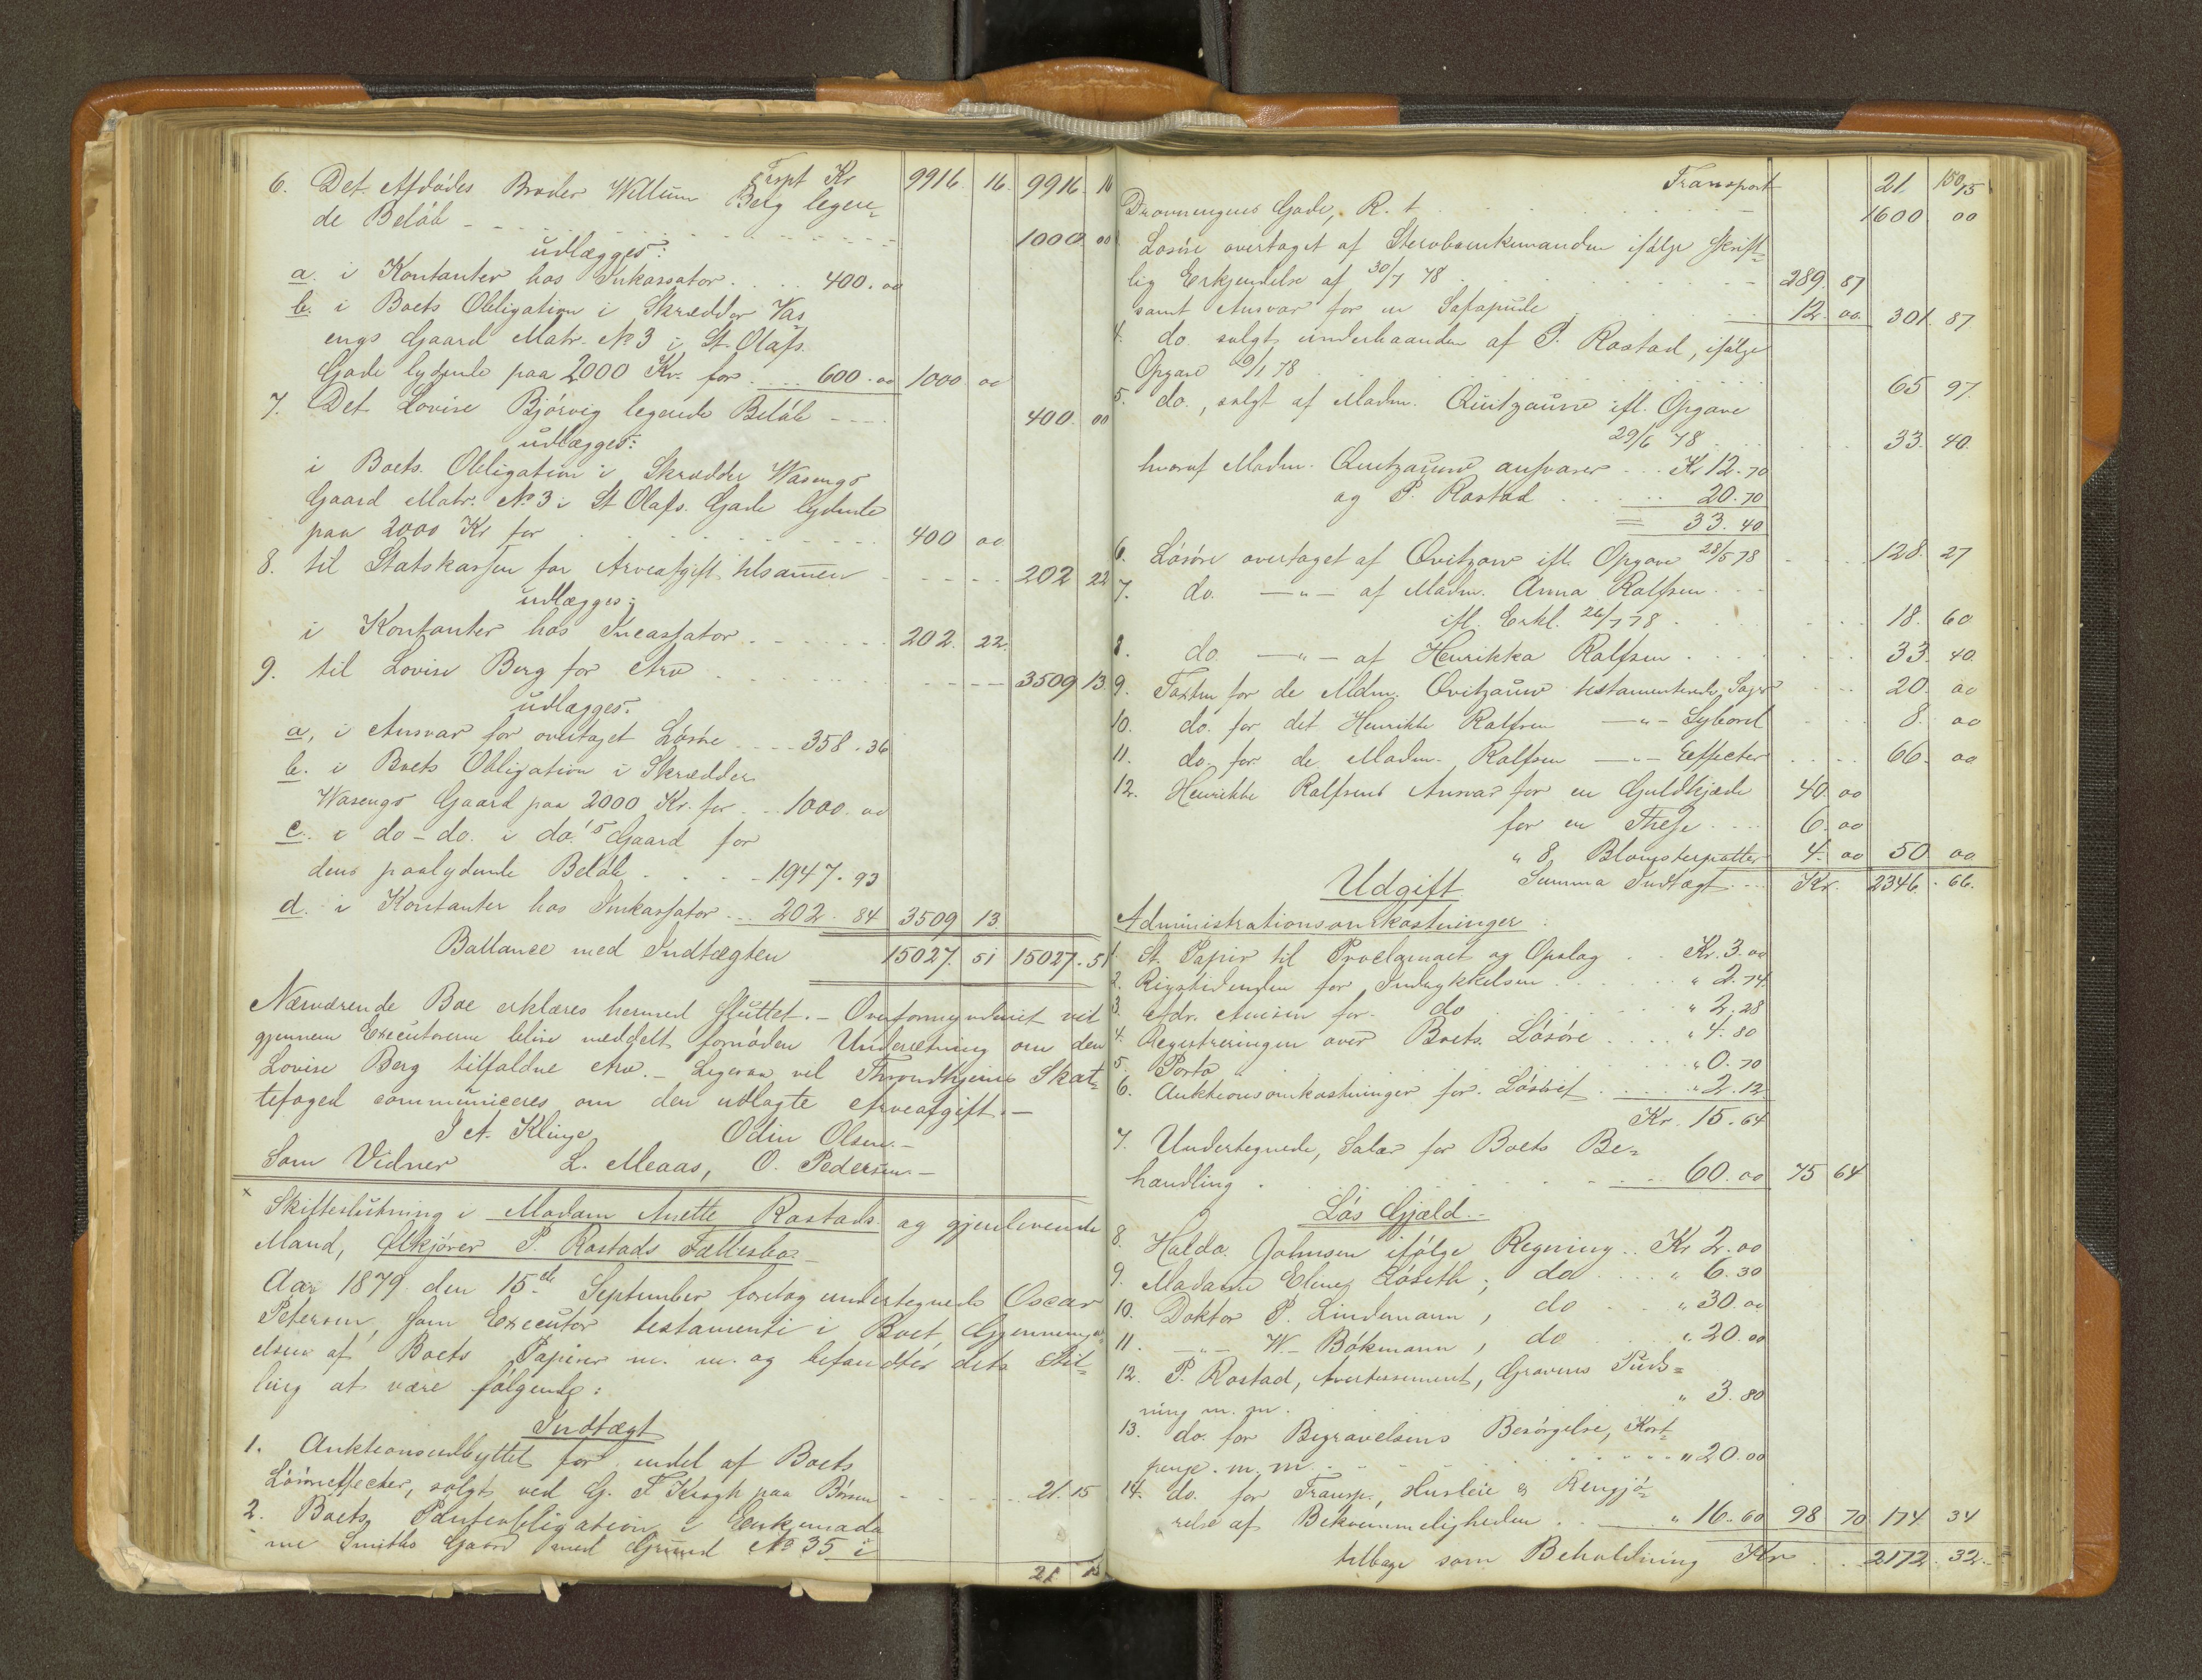 Trspt Kr 9916. 16. 9916. 16
6. Det Afdødes Broder Willum Berg legere-
de Beløb 1000 00
udlægges:
a. i Kontanter hos Inkassator 400.00
b. i Boets Obligation i Skrædder Vas
engs Gaard Matr. No 3 i St. Olafs
Gade lydende paa 2000 Kr. for 600.00 1000 00
7. Det Lovise Bjørvig legerede Beløb 400. 00
udlægges:
i Boets Obligation i Skrædder Wasengs
Gaard Matr. No 3 i St Olafs Gade lydende
paa 2000 Kr for 400 00
8. til Statskassen for Arveafgift tilsamen 202 22
udlægges:
i Kontanter hos Incassator 202. 22.
9. til Lovise Berg for Arv 3509 13
udlægges:
a, i Ansvar for overtaget Løsøre 358.36
b. i Boets Obligation i Skrædder
Wasengs Gaard paa 2000 Kr. for 1000.00
c. i do - do. i do's Gaard for
dens paalydende Beløb 1947.93
d. i Kontanter hos Inkassator 202.84 3509 13.
Ballance med Indtægten 15027. 51 15027. 51
Nærværende Boe erklæres hermed sluttet. - Overformynderiet vil
gjennem Executorerne blive meddelt fornøden Underretning om den
Lovise Berg tilfaldne Arv. - Ligesaa vil Throndhjems Skat-
tefoged communiceres om den udlagte Arveafgift. -
J A. Klinge Odin Olsen. -
Som Vidner L. Meaas, O. Pedersen. -
x Skifteslutning i Madam Anette Rostads og gjenlevende
Mand, P. Rostads Fællesbo -
Aar 1879 den 15de September foretog undertegnede Oscar
Petersen, som Executor testamenti i Boet, Gjennemga-
elsen af Boets Papirer m. m. og befandtes dets Stil-
ling at være følgende:
Indtægt
1. Auktionsudbyttet for endel af Boets
Løsøreffecter, solgt ved G. F Krogh paa Børsen 21.15
2. Boets Panteobligation i Enkemada
me Smiths Gaard med Grund No 35 i
21 15
Transport 21. 15
Dronningens Gade, R. t 1600. 00
Løsøre overtaget af Stervboenkemanden ifølge skrift-
lig Erkjendelse af 30/7 78 289. 87
samt Ansvar for en Sofapude 12. 00. 301. 87
4. do. solgt underhaanden af P. Rostad, ifølge
Opgave 9/1 78 65 97.
5. do., solgt af Madm. Quitzauw ifl. Opgave
29/6 78 33. 40.
hvoraf Madm. Quitzauw ansvarer Kr 12.70
og P. Rostad 20.70
= 33.40
6. Løsøre overtaget af Qvitzow ifl. Opgave 28/5 78 128. 27
7. do. -"- af Madm. Anna Rolfsen
ifl. Erkl. 26/7 78 18. 60
8. do -"- af Henrikka Rolfsen 33. 40.
9. Taxten for de Mdm. Qvitzauw testamenterede Sager 20. 00
10. do. for det Henrikke Rolfsen -"- Sybord 8. 00
11. do. for de Madm. Rolfsen -"- Effecter 66. 00
12. Henrikke Rolfsens Ansvar for en Guldkjæde 40. 00
for en 6. 00
" 8 Blomsterpotter 4. 00 50 00
Summa Indtægt Kr. 2346. 66.
Udgift
Administrationsomkostninger
1. St. Papir til Proclamaet og Opslag Kr. 3.00
2. Rigstidenden for Indrykkelsen " 2.74
3. Adr. Avisen for do " 2.28
4. Registreringen over Boets Løsøre " 4.80
5. Porto " 0.70
6. Auktionsomkostninger for Løsøret " 2.12
Kr. 15.64
7. Undertegnede, Salær for Boets Be-
handling 60.00 75 64
Løs Gjæld. -
8. Haldo. Johnsen ifølge Regning Kr 2.00
9. Madame Løseth, do " 6.30
10. Doktor P. Lindemann, do " 30.00
11. -"- W. Bøkmann, do " 20.00
12. P. Rostad, Avertissement, Gravens Puds-
ning m. m. " 3.80
13. do. for Begravelsens Besørgelse, Kost-
penge. m. m. " 20.00
14. do. for Transp., Husleie og Rengjø-
relse af Bekvemmeligheden " 16.60 98 70 174 34
tilbage som Beholdning Kr 2172. 32. -